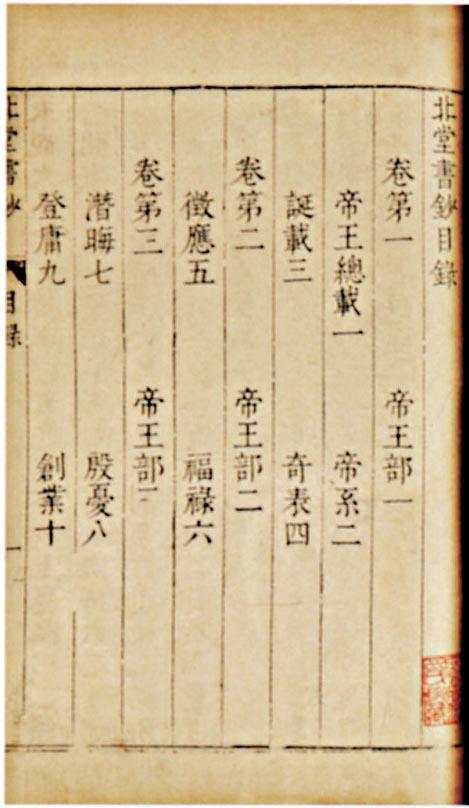 北堂書鈔目錄
卷第一 帝王部一
帝王總載一 帝系二
誕載三 奇表四
卷第二 帝王部二
徵應五 福祿六
卷第三 帝王部三
潛晦七 殷憂八
登庸九 創業十
北堂書鈔 目錄 一